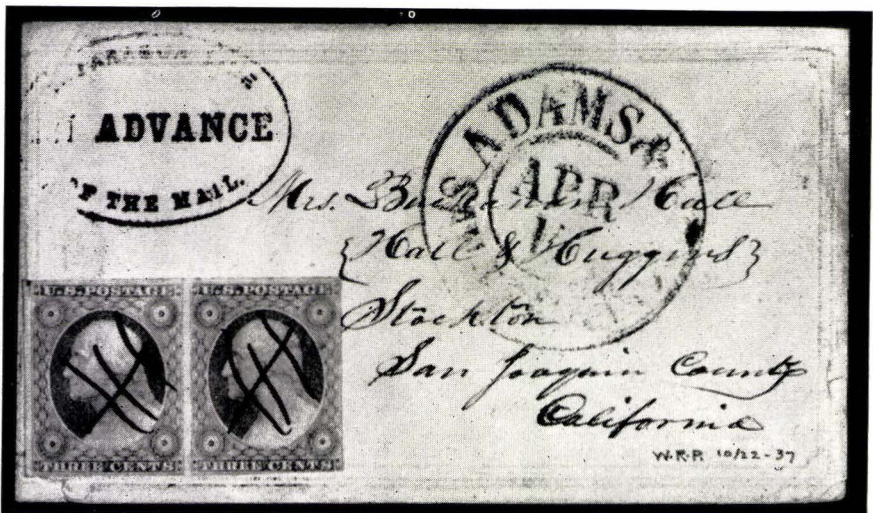 ADVANCE
OF THE MAIL.
ADAMS &
APR
Mrs. Buchanan Hall
{Hall & Huggins}
Stockton
San Joaquin County
California
U.S. POSTAGE
THREE CENTS
U.S. POSTAGE
THREE CENTS
W.R.P. 10/22-37